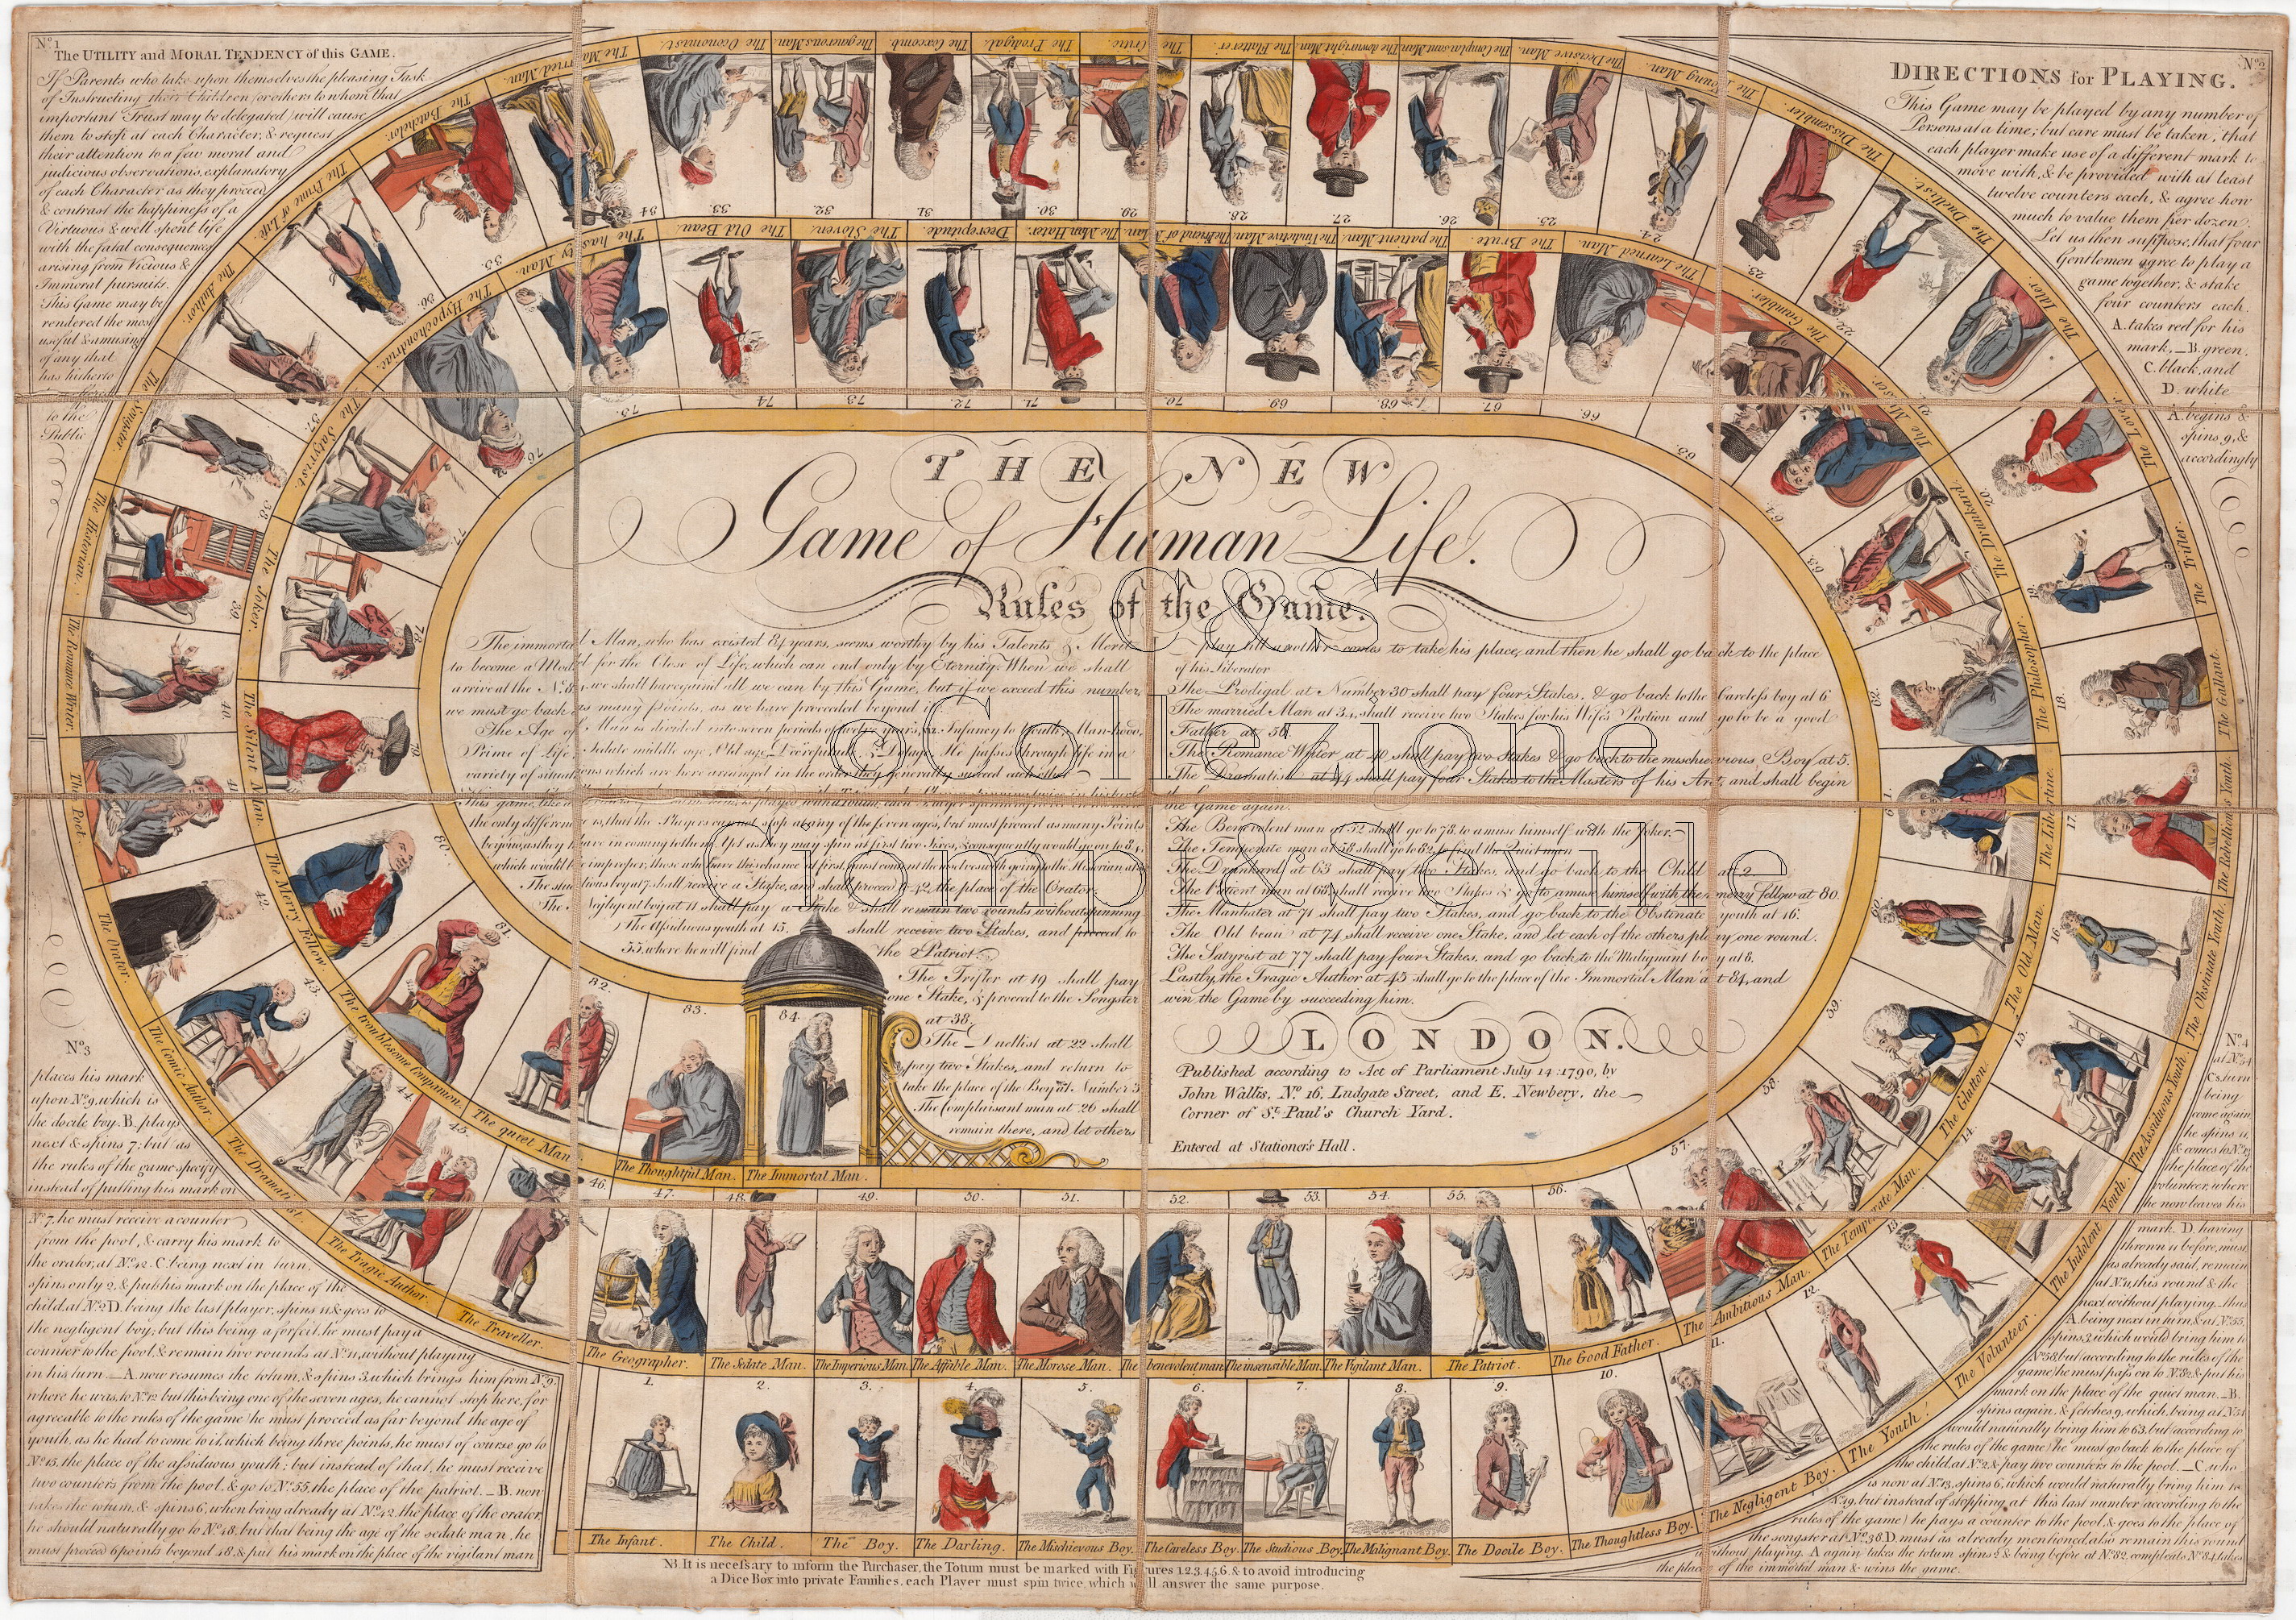 No. 1
The UTILITY and MORAL TENDENCY of this GAME.
If Parents who take upon themselves the pleasing Task
of Instructing their Children (or others to whom that
important Trust may be delegated) will cause
them to stop at each Character, & request
their attention to a few moral and
judicious observations, explanatory
of each Character as they proceed
& contrast the happiness of a
Virtuous & well spent life
with the fatal consequences
arising from Vicious &
Immoral pursuits.
This Game may be
rendered the most
useful & amusing
of any that
has hitherto
to the
Public
No. 2
DIRECTIONS for PLAYING.
This Game may be played by any number of
Persons at a time; but care must be taken, that
each player make use of a different mark to
move with, & be provided with at least
twelve counters each, & agree how
much to value them per dozen.
Let us then suppose, that four
Gentlemen agree to play a
game together, & stake
four counters each.
A. takes red for his
mark, _ B. green,
C. black, and
D. white
A. begins &
spins 9, &
accordingly
No. 3
places his mark
upon No. 9, which is
the docile boy. B. plays
next & spins 7; but as
the rules of the game specify
instead of putting his mark on
No. 7, he must receive a counter
from the pool, & carry his mark to
the orator, at No. 42. C. being next in turn,
spins only 2, & puts his mark on the place of the
child, at No. 2. D. being the last player, spins 11 & goes to
the negligent boy; but this being a forfeit, he must pay a
counter to the pool, & remain two rounds at No. 11, without playing
in his turn _ A. now resumes the totum, & spins 3, which brings him from No. 9
where he was, to No. 12 but this being one of the seven ages, he cannot stop here, for
agreeable to the rules of the game he must proceed as far beyond the age of
youth, as he had to come to it, which being three points, he must of course go to
No. 15, the place of the assiduous youth; but instead of that, he must receive
two counters from the pool, & go to No. 55, the place of the patriot. _ B. now
takes the totum, & spins 6, when being already at No. 42, the place of the orator,
he should naturally go to No. 48, but that being the age of the sedate man, he
must proceed 6 points beyond 48, & put his mark on the place of the vigilant man
No. 4
at No. 54
C's turn
being
come again
he spins 11,
& comes to No. 13
the place of the
volunteer, where
he now leaves his
mark. D. having
thrown 11 before, must
as already said, remain
at No. 11, this round & the
next without playing _ thus
A. being next in turn, & at No. 55,
spins 3, which would bring him to
No. 58, but according to the rules of the
game, he must pass on to No. 82 & put his
mark on the place of the quiet man. _ B.
spins again, & fetches 9, which, being at No. 54
would naturally bring him to 63, but according to
the rules of the game he must go back to the place of
the child, at No. 2, & pay two counters to the pool. _ C. who
is now at No. 13, spins 6, which would naturally bring him to
No. 19, but instead of stopping at this last number according to the
rules of the game he pays a counter to the pool, & goes to the place of
the songster at No. 38. D. must as already mentioned, also remain this round
without playing. A again takes the totum spins 2 & being before at No. 82, compleats No. 84, takes
the place of the immortal man & wins the game.
THE NEW
Game of Human Life.
Rules of the Game.
The immortal Man, who has existed 84 years, seems worthy by his Talents & Merit
to become a Model for the Close of Life, which can end only by Eternity. When we shall
arrive at the No. 84, we shall have gained all we can by this Game, but if we exceed this number,
we must go back as many points, as we have proceeded beyond it.
The Age of Man is divided into seven periods of twelve years, viz. Infancy to Youth, Manhood,
Prime of Life, Sedate middle age, Old age, Decrepitude, & Dotage. He passes through life in a
variety of situations which are here arranged in the order they generally succeed each other
the only difference is, that the Players cannot stop at any of the seven ages, but must proceed as many Points
beyond, as they have in coming to them. Yet as they may spin at first two Sixes, & consequently would go on to 84,
which would be improper, those who have this chance at first, must content themselves with going to the Historian at 39
The studious boy at 7, shall receive a Stake, and shall proceed to 42, the place of the Orator.
The Negligent boy at 11 shall pay a Stake & shall remain two rounds without spinning
The Assiduous youth at 15, shall receive two Stakes, and proceed to
55, where he will find the Patriot.
The Trifler at 19 shall pay
one Stake, & proceed to the Songster
at 38.
The Duellist at 22 shall
pay two Stakes, and return to
take the place of the Boy at Number 3
The Complaisant man at 26 shall
remain there, and let others
play till another comes to take his place, and then he shall go back to the place
of his Liberator
The Prodigal at Number 30 shall pay four Stakes, & go back to the Careless boy at 6
The married Man at 34, shall receive two Stakes for his Wife's Portion and go to be a good
Father at 56.
The Romance Writer at 40 shall pay two Stakes & go back to the mischievous Boy at 5.
The Dramatist at 44 shall pay four Stakes to the Masters of his Art, and shall begin
the Game again.
The Benevolent man at 52 shall go to 78, to amuse himself with the Joker.
The Temperate man at 58 shall go to 82, to find the Quiet man
The Drunkard at 63 shall pay two Stakes, and go back to the Child at 2.
The Patient man at 68, shall receive two Stakes & go to amuse himself with the merry fellow at 80.
The Manhater at 71 shall pay two Stakes, and go back to the Obstinate youth at 16.
The Old beau at 74 shall receive one Stake, and let each of the others play one round.
The Satyrist at 77 shall pay four Stakes, and go back to the Malignant boy at 8.
Lastly, the Tragic Author at 45 shall go to the place of the Immortal Man at 84, and
win the Game by succeeding him.
LONDON.
Published according to Act of Parliament July 14: 1790, by
John Wallis, No. 16, Ludgate Street, and E. Newbery, the
Corner of St. Paul's Church Yard.
Entered at Stationer's Hall.
C&S
Collezione
Ciompi&Seville
1. The Infant.
2. The Child.
3. The Boy.
4. The Darling.
5. The Mischievous Boy.
6. The Careless Boy.
7. The Studious Boy.
8. The Malignant Boy.
9. The Docile Boy.
10. The Thoughtless Boy.
11. The Negligent Boy.
12. The Youth.
13. The Volunteer.
14. The Indolent Youth.
15. The Assiduous Youth.
16. The Obstinate Youth.
17. The Rebellious Youth.
18. The Gallant.
19. The Trifler.
20. The Lover.
21. The Idler.
22. The Duellist.
23. The Dissembler.
24. The Young Man.
25. The Decisive Man.
26. The Complaisant Man.
27. The downright Man.
28. The Flatterer.
29. The Critic.
30. The Prodigal.
31. The Coxcomb.
32. The generous Man.
33. The Oeconomist.
34. The Married Man.
35. The Batchelor.
36. The Prime of Life.
37. The Author.
38. The Songster.
39. The Historian.
40. The Romance Writer.
41. The Poet.
42. The Orator.
43. The Comic Author.
44. The Dramatist.
45. The Tragic Author.
46. The Traveller.
47. The Geographer.
48. The Sedate Man.
49. The Imperious Man.
50. The Affable Man.
51. The Morose Man.
52. The benevolent man.
53. The insensible Man.
54. The Vigilant Man.
55. The Patriot.
56. The Good Father.
57. The Ambitious Man.
58. The Temperate Man.
59. The Glutton.
60. The Old Man.
61. The Libertine.
62. The Philosopher.
63. The Drunkard.
64. The Miser.
65. The Grumbler.
66. The Learned Man.
67. The Brute.
68. The patient Man.
69. The Vindictive Man.
70. The Friend of Man.
71. The Man Hater.
72. Decrepitude.
73. The Sloven.
74. The Old Beau.
75. The hasty Man.
76. The Hypochondriac.
77. The Satyrist.
78. The Joker.
79. The Silent Man.
80. The Merry Fellow.
81. The troublesome Companion.
82. The quiet Man.
83. The Thoughtful Man.
84. The Immortal Man.
NB. It is necessary to inform the Purchaser, the Totum must be marked with Figures 1.2.3.4.5.6. & to avoid introducing
a Dice Box into private Families, each Player must spin twice, which will answer the same purpose.